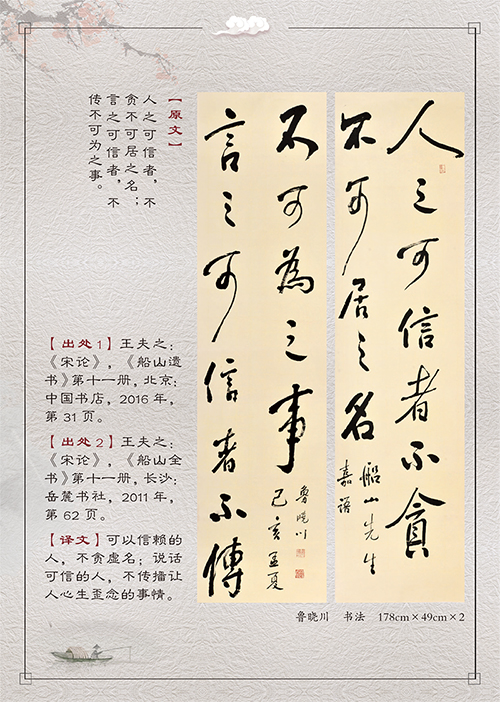 【原文】
人之可信者，不
贪不可居之名；
言之可信者，不
传不可为之事。
人之可信者不貪
不可居之名
船山先生
嘉语
言之可信者不傳
不可為之事
鲁晓川
己亥孟夏
【出处1】王夫之：
《宋论》，《船山遗
书》第十一册，北京：
中国书店，2016年，
第31页。
【出处2】王夫之：
《宋论》，《船山全
书》第十一册，长沙：
岳麓书社，2011年，
第62页。
【译文】可以信赖的
人，不贪虚名；说话
可信的人，不传播让
人心生歪念的事情。
鲁晓川 书法 178cm×49cm×2